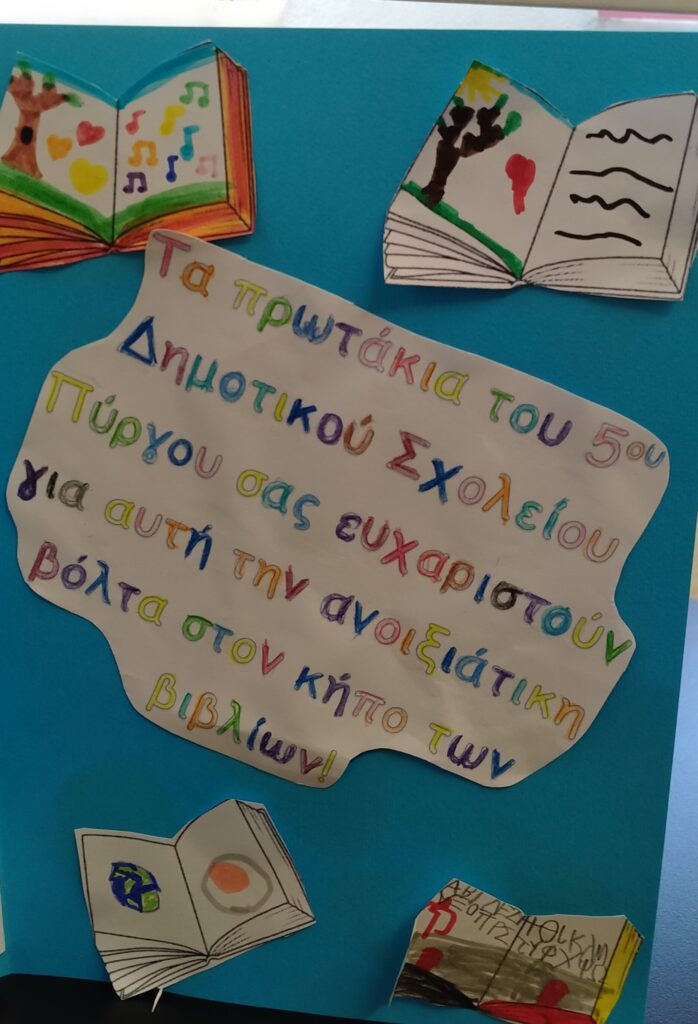 Τα πρωτάκια του 5ου
Δημοτικού Σχολείου
Πύργου σας ευχαριστούν
για αυτή την ανοιξιάτικη
βόλτα στον κήπο των
βιβλίων!